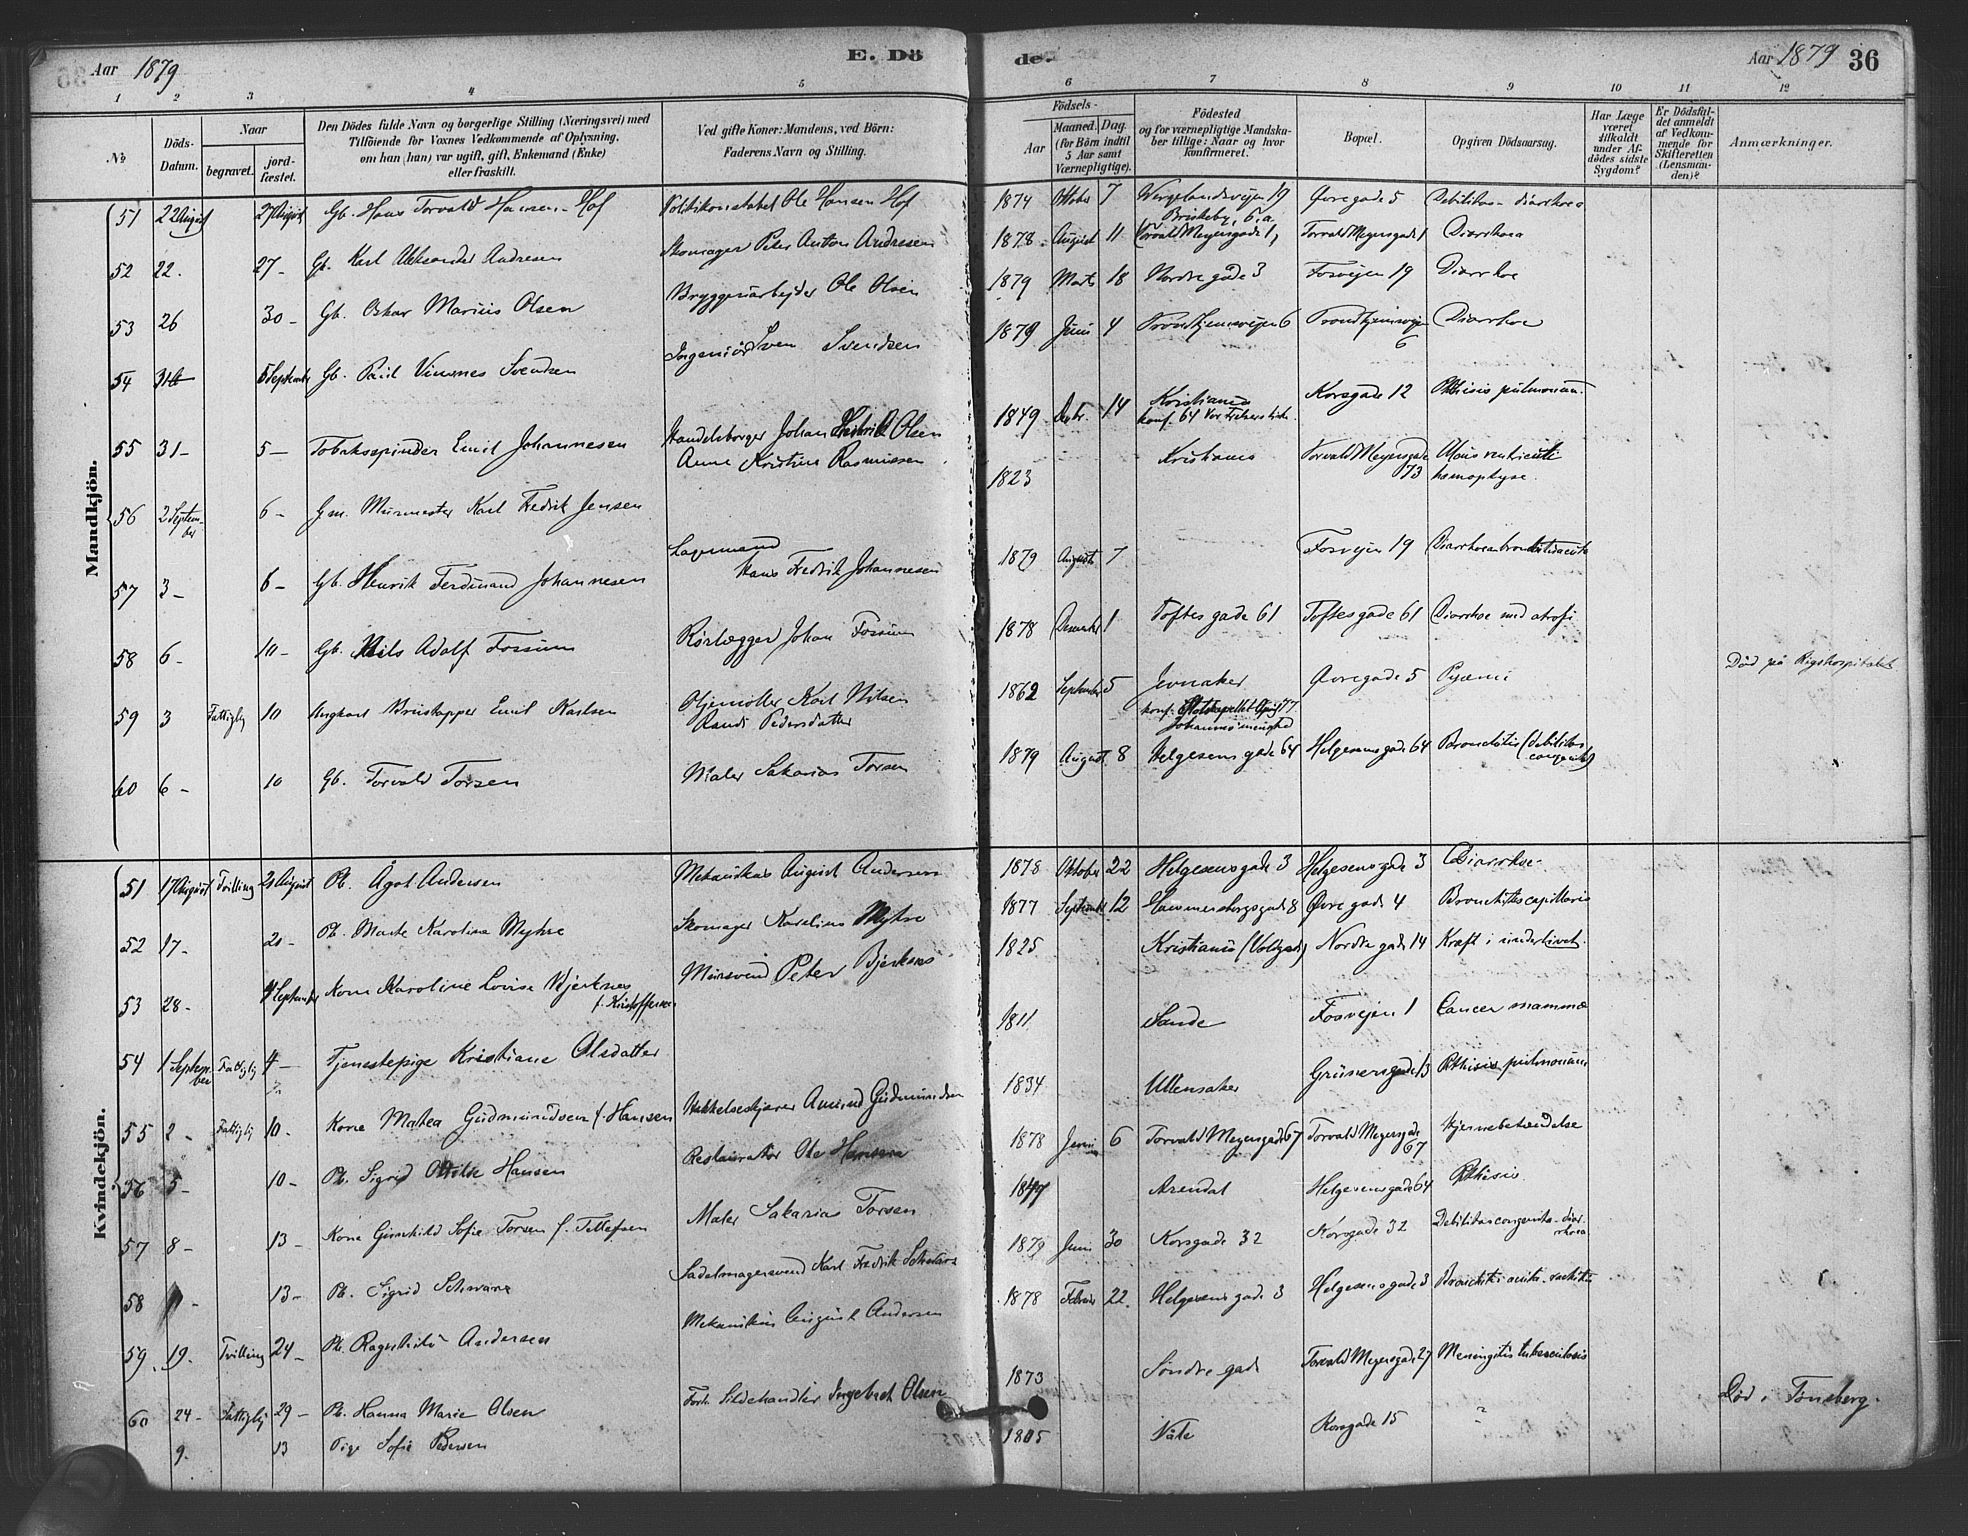 Aar 1879
E. Dö
de.
Aar 1879 36
1 2 3 4 5 6 7 8 9 10 11 12
№
Döds-Datum.
Naar
begravet.
jord-fæstet.
Den Dödes fulde Navn og borgerlige Stilling (Næringsvei) med
Tilföiende for Voxnes Vedkommende af Oplysning,
om han (hun) var ugift, gift, Enkemand (Enke)
eller fraskilt.
Ved gifte Koner: Mandens, ved Börn:
Faderens Navn og Stilling.
Födsels-
Aar
Maaned. Dag.
(for Börn indtil
5 Aar samt
Værnepligtige).
Födested
og for værnepligtige Mandska-
ber tillige: Naar og hvor
konfirmeret.
Bopæl.
Opgiven Dödsaarsag.
Har Læge
været
tilkaldt
under Af-
dödes sidste
Sygdom?
Er Dödsfal-
det anmeldt
af Vedkom-
mende for
Skifteretten
(Lensman-
den)?
Anmærkninger.
Mandkjön.
51 22 August 27 August Gb. Hans Torvald Hansen Hof Politikonstabel Ole Hansen Hof 1874 Oktober 7 Wergelandsveien 19 Briskeby, 6.a. Øvregade 5 Debilitas diarrhoea
52 22. 27 - Gb. Karl Aleksander Andresen Skomager Peter Anton Andresen 1878 August 11 Torvald Meyersgade 1, Torvald Meyersgade 1 Diarrhoea
53 26 30 - Gb. Oskar Marius Olsen Bryggeriarbejder Ole Olsen 1879 Marts 18 Nordregade 3 Fosvejen 19 Diarrhoe
54 31 5 September Gb. Paul Svendsen Ingeniör Sven Svendsen 1879 Juni 4 Trondhjemsvejen 6 Trondhjemsvejen 6 Diarrhoe
55 31 - 5 - Tobaksspinder Emil Johannesen Handelsborger Johan Hendrik Olsen Anne Kristine Rasmussen 1849 Decbr. 14 Kristiania konf. 64 Vor Frelsers kirke Korsgade 12 Phthisis pulmonum
56 2 September 6 - Gm. Murmester Karl Fredrik Jensen 1823 Kristiania Torvald Meyersgade 73 Ulcus ventriculi hæmoptyse.
57 3 - 6 - Gb. Henrik Ferdinand Johannesen Lagermand Hans Fredrik Johannesen 1879 August 7 Fosvejen 19 Diarrhoea bronchitis acuta
58 6 - 10 - Gb. Nils Adolf Fossum Rørlægger Johan Fossum 1878 December 1 Toftesgade 61 Toftesgade 61 Diarrhoe med atrofi
59 3 Fattiglig 10 Ungkarl Emil Karlsen Oljemøller Karl Nilsen Randi Pedersdatter 1862 September 5 Jevnaker konf. Slotskapellet April 77 Johannes menighed Øvregade 5 Pyæmi Død på Rigshospitalet
60 6 - 10 Gb. Torvald Torsen Maler Sakarias Torsen 1879 August 8 Helgesensgade 64 Helgesensgade 64 Bronchitis (debilitas congenita)
Kvindekjön.
51 17 August Tvilling 21 August Pb. Ågot Andersen Mekanikus August Andersen 1878 Oktober 22 Helgesensgade 3 Helgesensgade 3 Diarrhoe.
52 17 - 20 - Pb. Marte Karoline Myhre Skomager Karolius Myhre 1877 September 12 Hammersborgsgade 8 Øvregade 4 Bronchitis capillaris
53 28 - 4 September Kone Karoline Lovise Bjerknes f. Kristoffersen Mursvend Peter Bjerknes 1825 Kristiania (Voldgade) Nordregade 14 Kræft i underlivet.
54 1 September Fattiglig 4 - Tjenestepige Kristiane Olsdatter 1811 Sande Fosvejen 1 Cancer mammæ
55 2 - Fattiglig 10 - Kone Matea Gudmundsen f. Hansen Amund Gudmundsen 1834 Ullensaker Grünersgade 13 Phthisis pulmonum
56 5 - 10 - Pb. Sigrid Ottilie Hansen Restauratør Ole Hansen 1878 Juni 6 Torvald Meyersgade 67 Torvald Meyersgade 67 Hjernebetændelse
57 8 - 13 - Kone Gunhild Sofie Torsen f. Tellefsen Maler Sakarias Torsen 1849 Arendal Helgesensgade 64 Phthisis
58 11 - 13 - Pb. Sigrid Schwarz Sadelmagersvend Karl Fredrik Schwarz 1879 Juni 30 Korsgade 32 Korsgade 32 Debilitas congenita diarrhoea
59. 19. Tvilling 24 - Pb. Ragnhild Andersen Mekanikus August Andersen 1878 Februar 22. Helgesensgade 3 Helgesensgade 3 Bronchitis acuta - rachitis
60 24 - Fattiglig 29 - Pb. Hanna Marie Olsen Forh. Sildehandler Ingebret Olsen 1873 Søndregade Torvald Meyersgade 27 Meningitis tuberculosis
9. 13 Pige Sofie Pedersen 1805 Våle Korsgade 15 ? Död i Tönsberg.